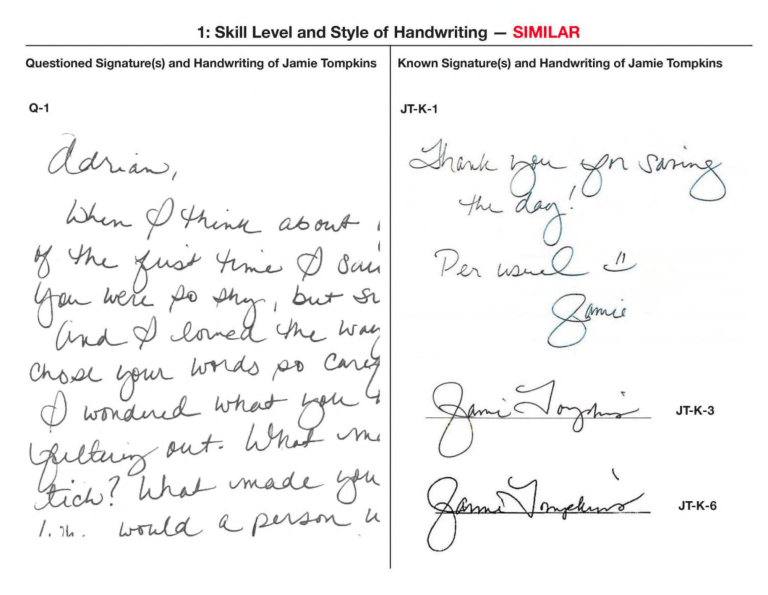 1: Skill Level and Style of Handwriting — SIMILAR
Questioned Signature(s) and Handwriting of Jamie Tompkins
Q-1
Adrian,
When I think about
of the first time I saw
You were so shy, but
and I loved the way
chose your words so
I wondered what you
filtering out. What
tick? What made you
would a person
Known Signature(s) and Handwriting of Jamie Tompkins
JT-K-1
Thank you for saving
the day!
Per usual
Jamie
Jamie Tompkins JT-K-3
Jamie Tompkins JT-K-6